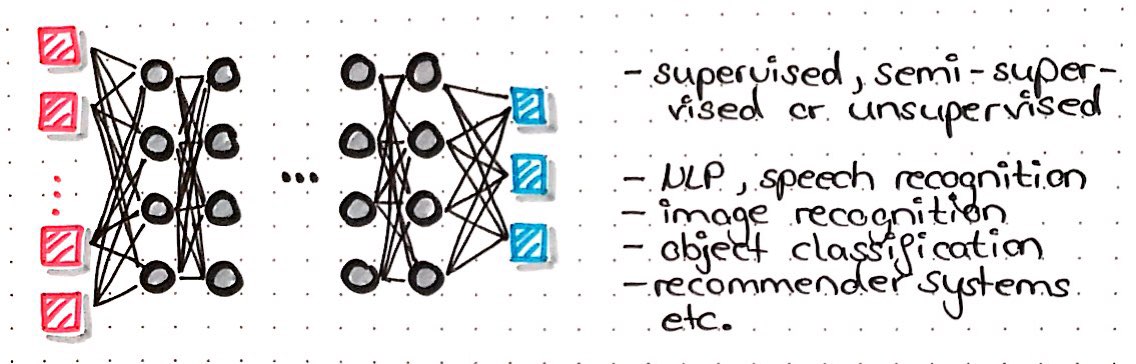 - supervised, semi-super-
vised or unsupervised
- NLP, speech recognition
- image recognition
- object classification
- recommender systems
etc.